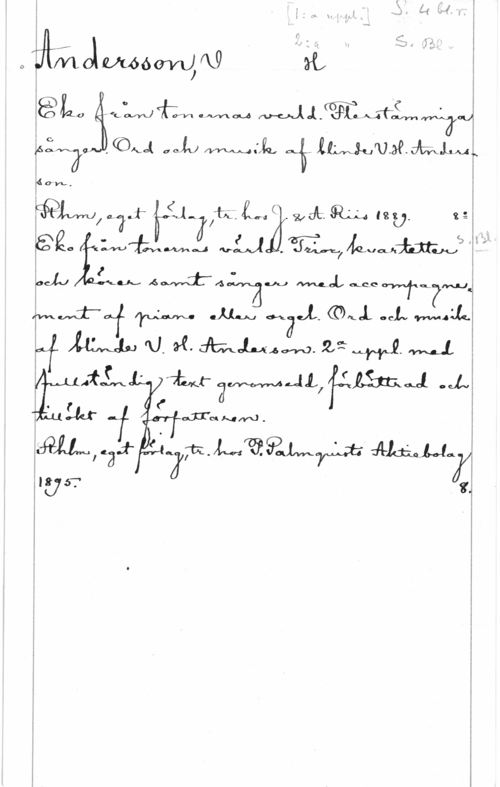 [1:a uppl.] S. 4 bl. r.
Andersson, V H
2:a " S. Bl.
Eko från tonernas verld. Flerstämmiga
sånger. Ord och musik af blinde V. H. Anders-
son.
Sthm, eget förlag, tr. hos J. & A. Riis 1889. 8:
Eko från tonernas värld. Trior, kvartetter S. Bl.
och körer samt sånger med accompagne-
ment af piano eller orgel. Ord och musik
af blinde V. H. Andersson. 2:a uppl. med
fullständig text genomsedd, förbättrad och
tillökt af författaren.
Sthlm, eget förlag, tr. hos P. Palmquists Aktiebolag
1895. 8.